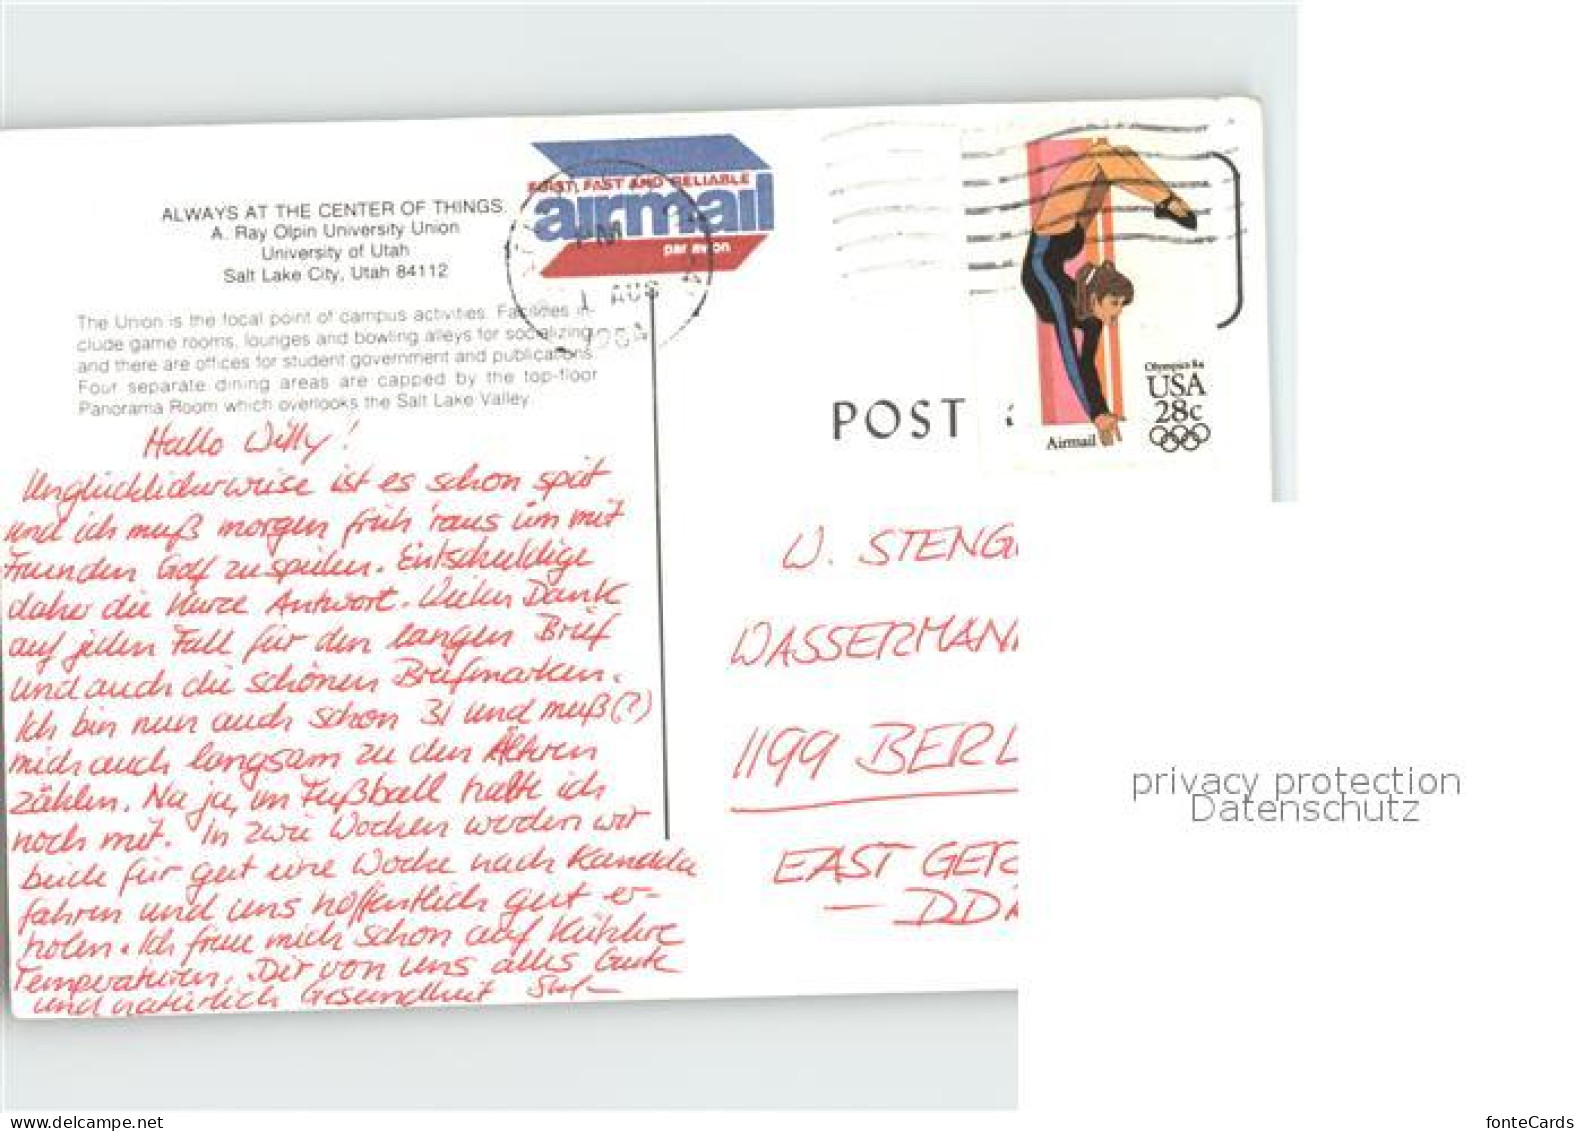 ALWAYS AT THE CENTER OF THINGS.
A. Ray Olpin University Union
University of Utah
Salt Lake City, Utah 84112
The Union is the focal point of campus activities. Facilities in-
clude game rooms, lounges and bowling alleys for socializing,
and there are offices for student government and publications.
Four separate dining areas are capped by the top-floor
Panorama Room which overlooks the Salt Lake Valley.
FIRST, FAST AND RELIABLE
airmail
par avion
PM
1 AUG
1984
Olympics 84
USA
28c
Airmail
POST
Hallo Willy!
Unglücklicherweise ist es schon spät
und ich muß morgen früh 'raus um mit
Freunden Golf zu spielen. Entschuldige
daher die kurze Antwort. Vielen Dank
auf jeden Fall für den langen Brief
und auch die schönen Briefmarken.
Ich bin nun auch schon 31 und muß(?)
mich auch langsam zu den Älteren
zählen. Na ja, im Fußball halte ich
noch mit. In zwei Wochen werden wir
beide für gut eine Woche nach Kanada
fahren und uns hoffentlich gut er-
holen. Ich freue mich schon auf kühlere
Temperaturen. Dir von uns alles Gute
und natürlich Gesundheit
W. STENG
WASSERMANN
1199 BERL
EAST GER
— DDR
privacy protection
Datenschutz
fonteCards